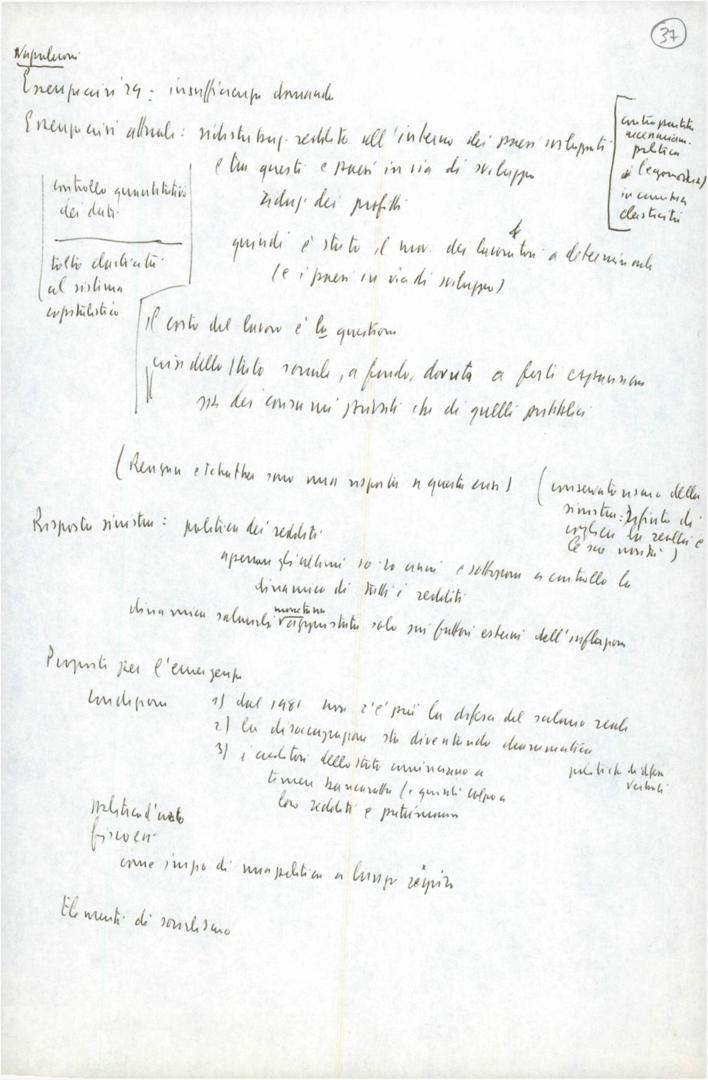 37
Napoleoni
Essenza crisi '29: insufficienza domanda
Essenza crisi attuale: ridistribuz. reddito all'interno dei paesi sviluppati
e tra questi e paesi in via di sviluppo
riduz. dei profitti
quindi è stato il mov. dei lavoratori a determinarla
(e i paesi in via di sviluppo)
contropartita
necessariam.
politica
(egemonia)
in cambio
elasticità
controllo quantitativo
dei dati
tolto elasticità
al sistema
capitalistico
il costo del lavoro è la questione
crisi dello Stato sociale, a fondo, dovuta a forti espansioni
sia dei consumi privati che di quelli pubblici
(Reagan e Thatcher sono una risposta a questa crisi)
(conservatorismo della
sinistra: rifiuto di
cogliere la realtà e
le sue novità)
Risposta sinistra: politica dei redditi
gli ultimi 10-20 anni e sottoporre a controllo la
dinamica di tutti i redditi
dinamica salariale monetaria solo sui fattori esterni dell'inflazione
Proposta per l'emergenza
Condizioni 1) dal 1981 non c'è più la difesa del salario reale
2) la disoccupazione sta diventando drammatica
3) i creditori dello stato cominciano a
temere bancarotta (e quindi colpo a
loro redditi e patrimonio
politiche di difesa
politica d'urto
fiscale
come inizio di una politica a lungo respiro
Elementi di socialismo